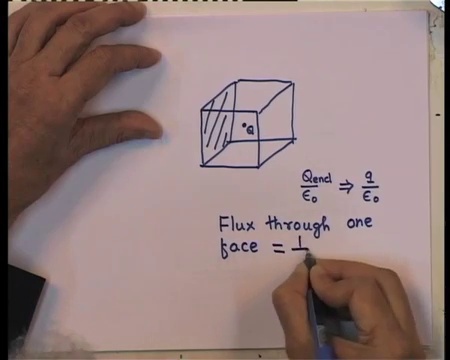 Q
Qencl/ε₀ ⇒ q/ε₀
Flux through one
face = 1/